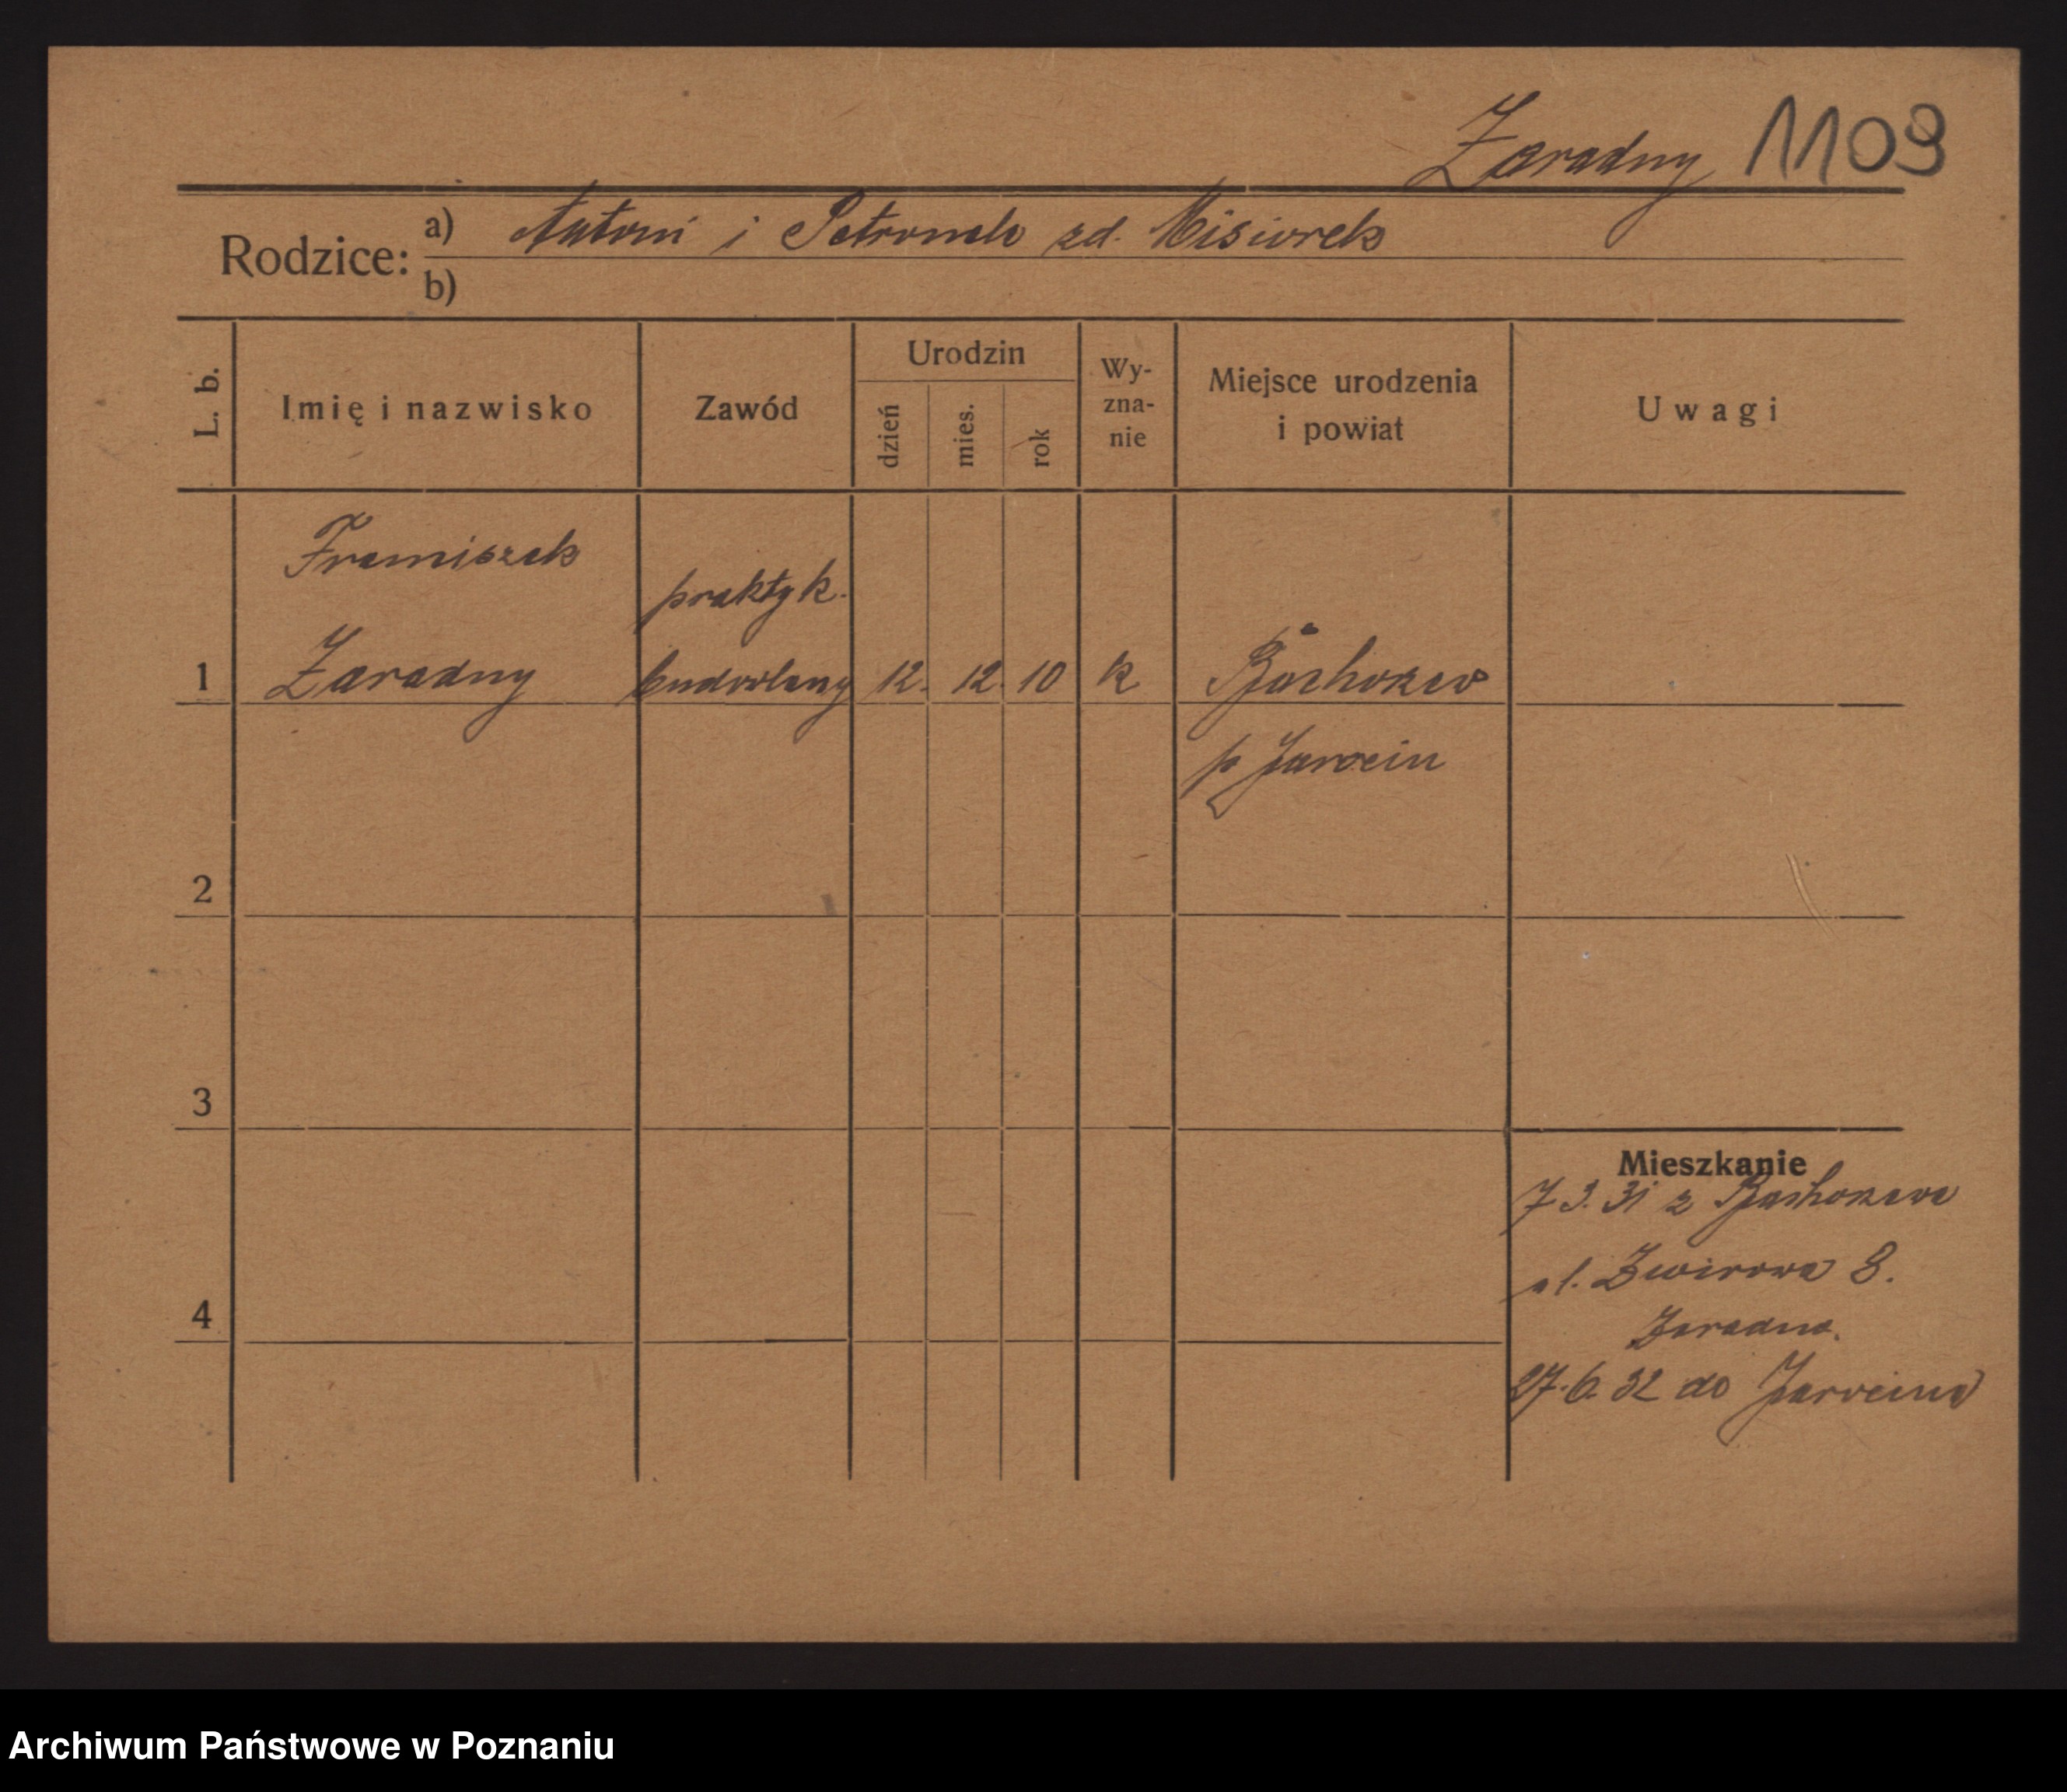 Zaradny 1109
Rodzice: a) Antoni i Petronela zd. Misiorek
b)
L. b. Imię i nazwisko Zawód Urodzin dzień mies. rok Wy-zna-nie Miejsce urodzenia i powiat Uwagi
Franciszek
praktyk.
1 Zaradny budowlany 12. 12. 10 k Bachorzew
p Jarocin
2
3
Mieszkanie
7 3. 31 z Bachorzewa
ul. Żwirowa 8.
4 Zaradna.
27. 6. 32 do Jarocina
Archiwum Państwowe w Poznaniu